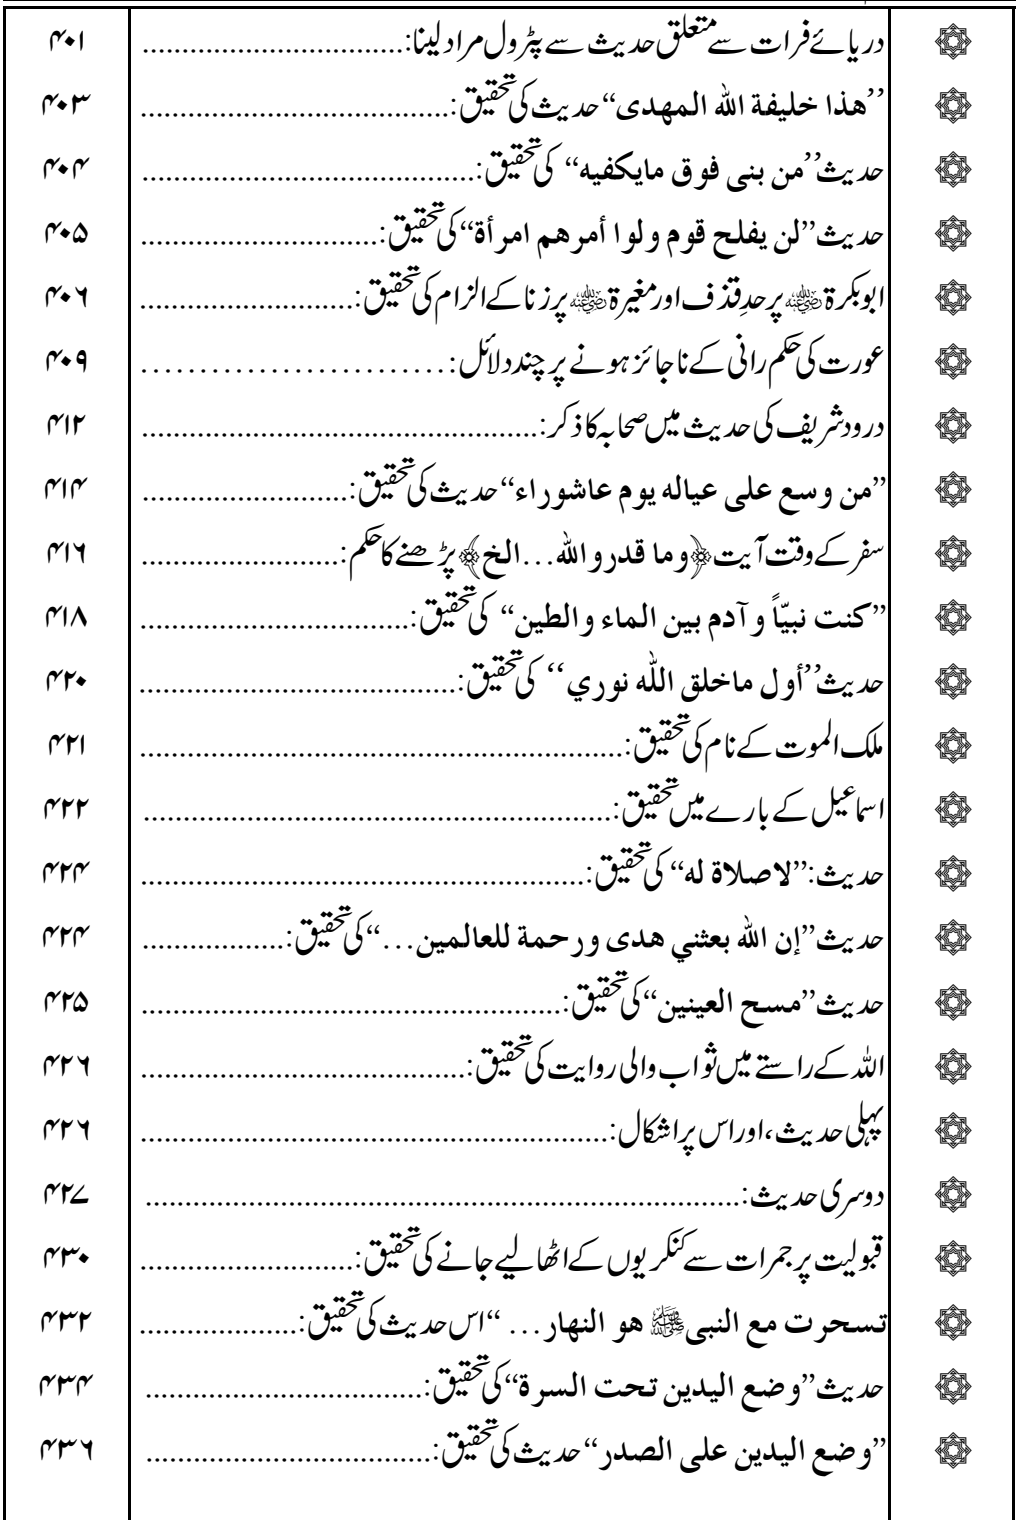 دریائے فرات سے متعلق حدیث سے پٹرول مراد لینا:................................ ۴۰۱
’’هذا خليفة الله المهدى‘‘ حدیث کی تحقیق:...................................... ۴۰۳
حدیث’’من بنى فوق مايكفيه‘‘ کی تحقیق:......................................... ۴۰۴
حدیث’’لن يفلح قوم ولوا أمرهم امرأة‘‘ کی تحقیق:.............................. ۴۰۵
ابوبکرۃ رضی اللہ عنہ پر حدِ قذف اور مغیرۃ رضی اللہ عنہ پر زنا کے الزام کی تحقیق:........................... ۴۰۶
عورت کی حکم رانی کے ناجائز ہونے پر چند دلائل:........................... ۴۰۹
درود شریف کی حدیث میں صحابہ کا ذکر:................................................. ۴۱۲
’’من وسع على عياله يوم عاشوراء‘‘ حدیث کی تحقیق:.......................... ۴۱۴
سفر کے وقت آیت ﴿وما قدروا الله...الخ﴾ پڑھنے کا حکم:......................... ۴۱۶
’’كنت نبيّاً وآدم بين الماء والطين‘‘ کی تحقیق:.................................. ۴۱۸
حدیث’’أول ماخلق الله نوري‘‘ کی تحقیق:........................................ ۴۲۰
ملک الموت کے نام کی تحقیق:............................................................ ۴۲۱
اسماعیل کے بارے میں تحقیق:.......................................................... ۴۲۲
حدیث:’’لاصلاة له‘‘ کی تحقیق:....................................................... ۴۲۴
حدیث’’إن الله بعثني هدى ورحمة للعالمين...‘‘ کی تحقیق:.................. ۴۲۴
حدیث’’مسح العينين‘‘ کی تحقیق:..................................................... ۴۲۵
اللہ کے راستے میں ثواب والی روایت کی تحقیق:......................................... ۴۲۶
پہلی حدیث، اور اس پر اشکال:........................................................... ۴۲۶
دوسری حدیث:........................................................................... ۴۲۷
قبولیت پر جمرات سے کنکریوں کے اٹھا لیے جانے کی تحقیق:........................... ۴۳۰
تسحرت مع النبى ﷺ هو النهار...‘‘ اس حدیث کی تحقیق:.................... ۴۳۲
حدیث’’وضع اليدين تحت السرة‘‘ کی تحقیق:................................... ۴۳۴
’’وضع اليدين على الصدر‘‘ حدیث کی تحقیق:.................................... ۴۳۶